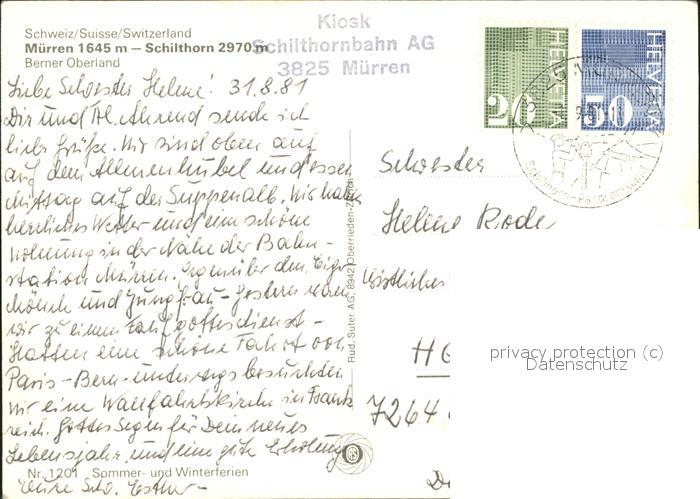 Schweiz/Suisse/Switzerland
Mürren 1645 m — Schilthorn 2970 m
Berner Oberland
Kiosk
Schilthornbahn AG
3825 Mürren
HELVETIA
20
HELVETIA
50
Liebe Schwester Helene! 31.8.81
Dir und Frl. Ahrend sende ich
liebe Grüße. Wir sind oben auf
auf dem Allmenhubel und essen
Mittag auf der Suppenalb. Wir haben
herrliches Wetter und eine schöne
Wohnung in der Nähe der Bahn-
station Mürren. Gegenüber dem Eiger
Mönch und Jungfrau - Gestern waren
wir zu einem gottesdienst -
Hatten eine schöne Fahrt von
Paris - Bern - unterwegs besuchten
wir eine Wallfahrtskirche in Frank
reich. Gottes Segen für Dein neues
Lebensjahr und eine gute Erholung
Nr. 1201 Sommer- und Winterferien
Eure Schw. Esther -
Rud. Suter AG, 8942 Oberrieden-Zürich
Schwester
Helene Rode
7264
privacy protection (c)
Datenschutz